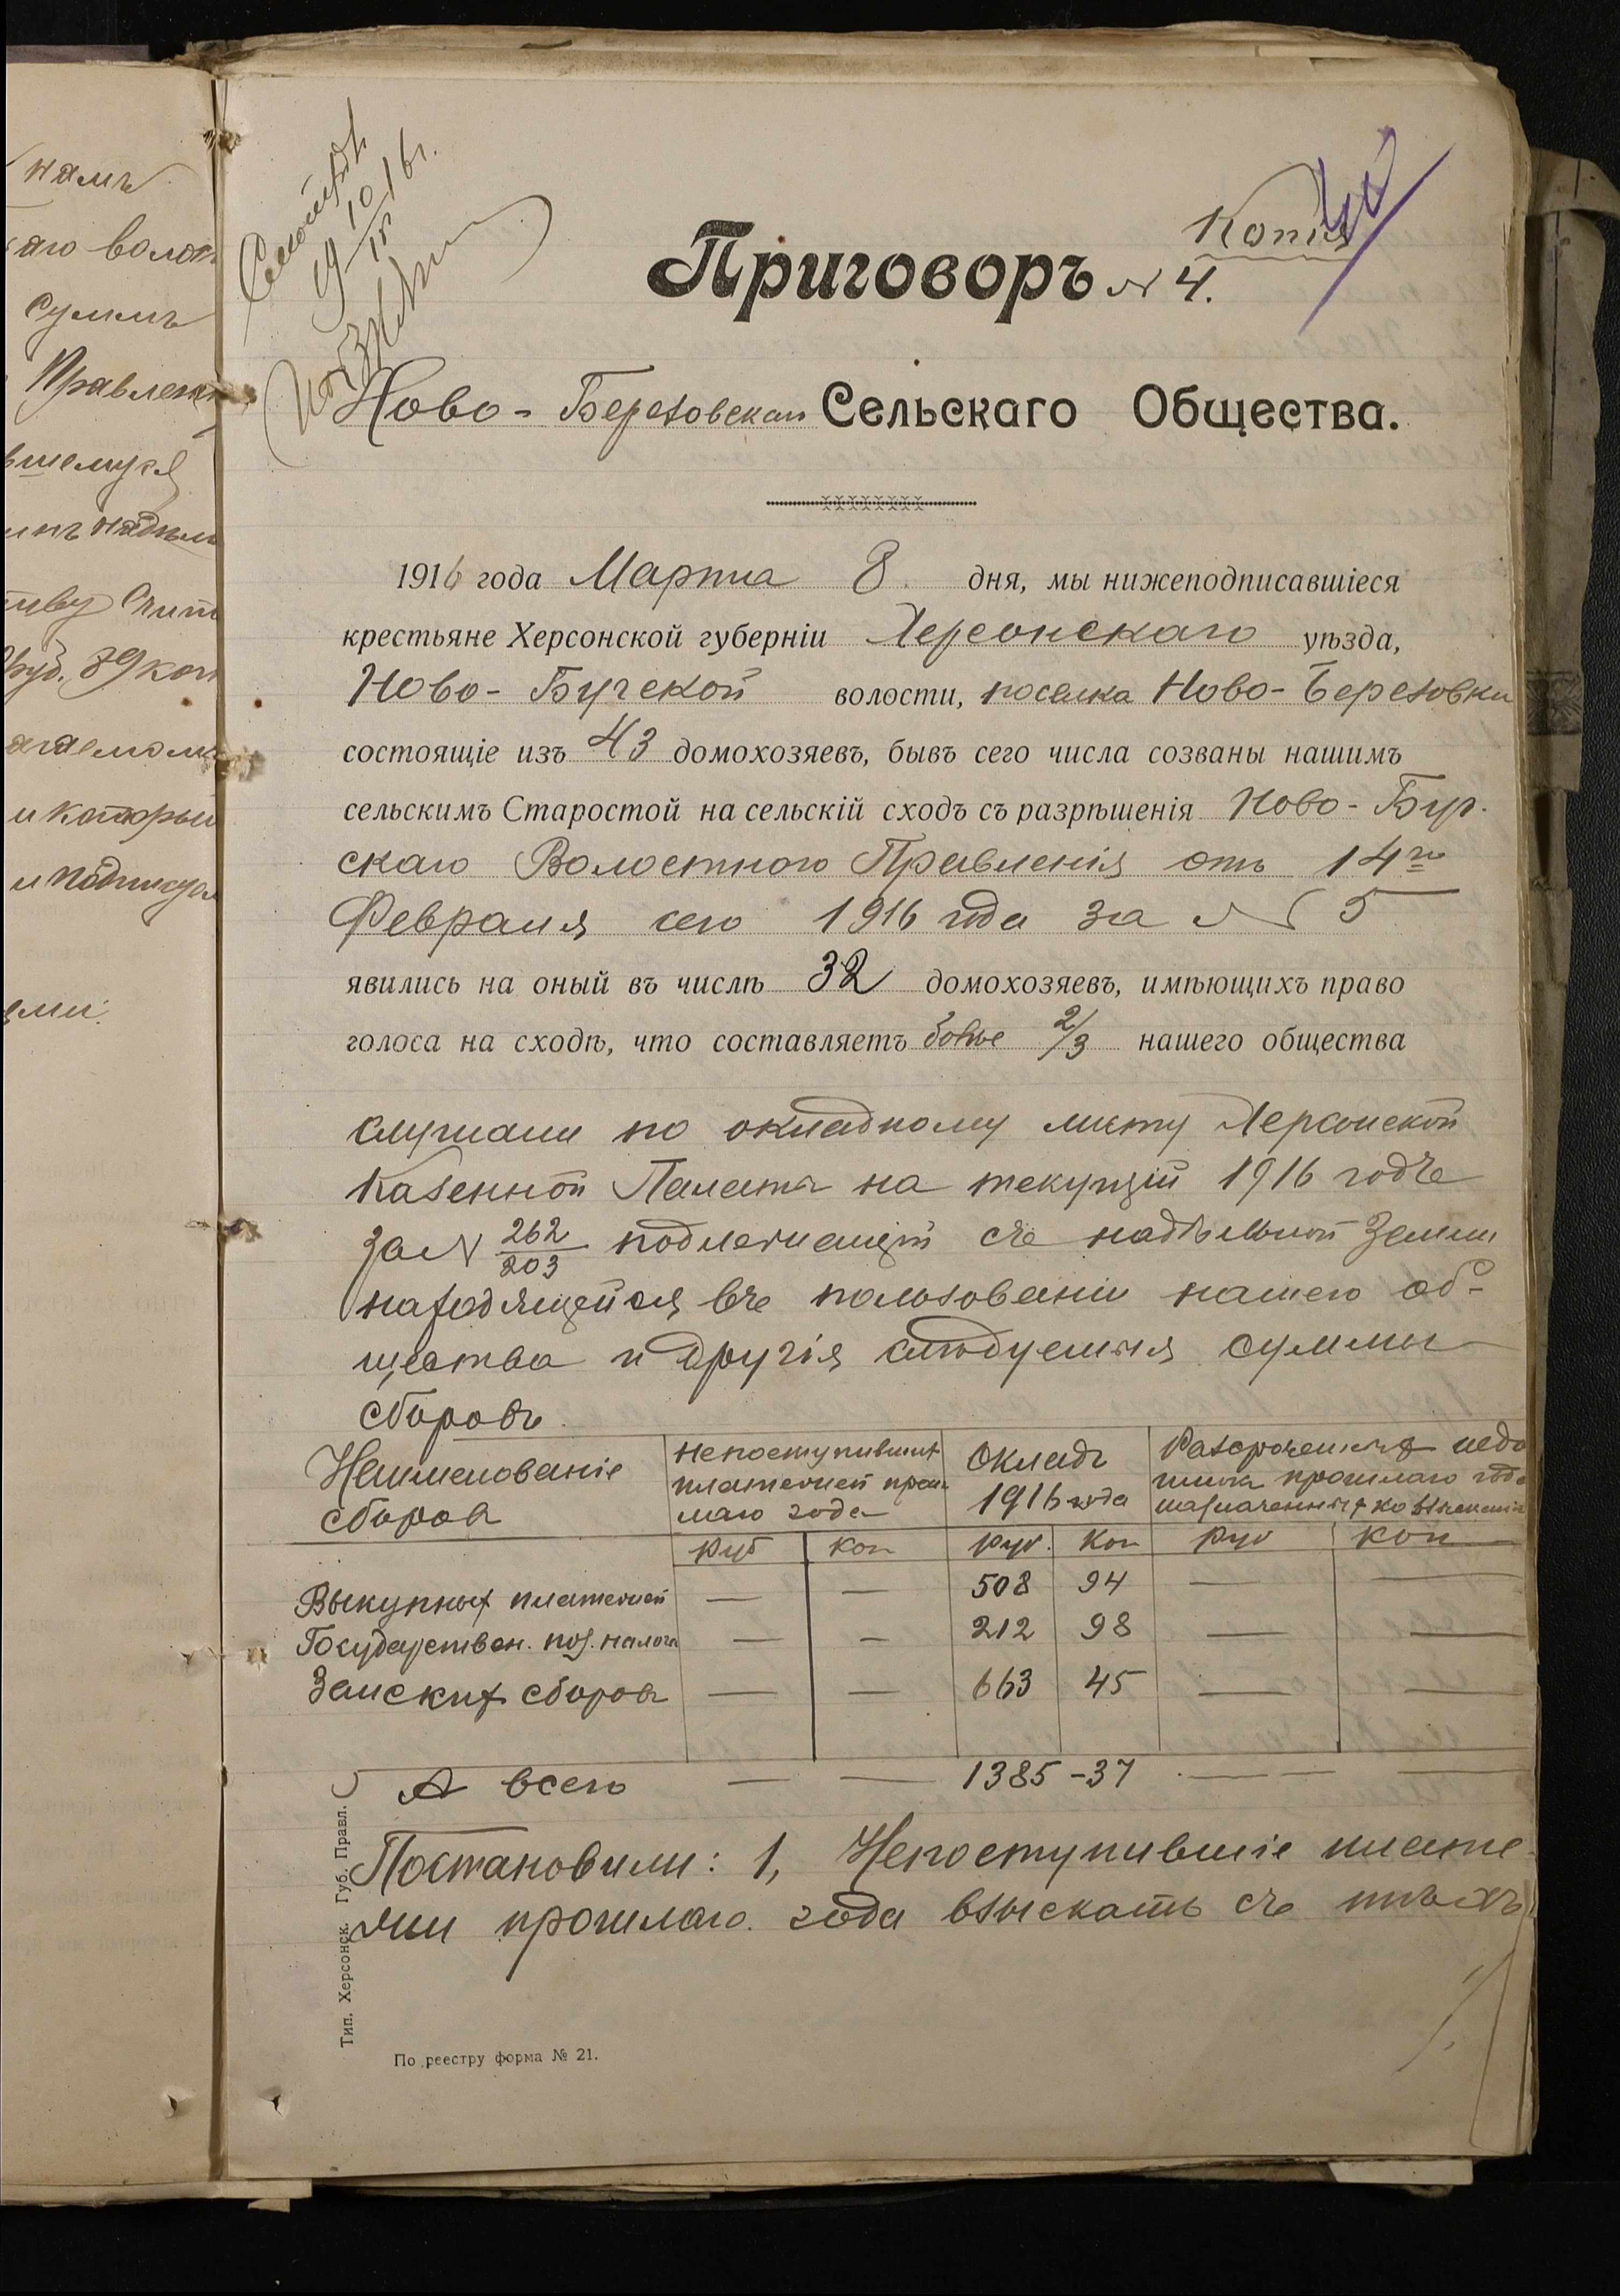 намъ
аго волос
суммъ
Правлен
вшемуся
руб. 39 коп
и которы
ями.
Копія
Приговоръ № 4.
Ново-Березовскаго Сельскаго Общества.
1916 года Марта 8 дня, мы нижеподписавшіеся
крестьяне Херсонской губерніи Херсонскаго уѣзда,
Ново-Бугской волости, поселка Ново-Березовки
состоящіе изъ 43 домохозяевъ, бывъ сего числа созваны нашимъ
сельскимъ Старостой на сельскій сходъ съ разрѣшенія Ново-Буг-
скаго Волостного Правленія отъ 14го
Февраля сего 1916 года за № 5
явились на оный въ числѣ 32 домохозяевъ, имѣющихъ право
голоса на сходѣ, что составляетъ болѣе 2/3 нашего общества
слушали по окладному листу Херсонской
Казенной Палаты на текущій 1916 годъ
за № 262/203 подлежащій съ надѣльной Земли
находящейся въ пользованіи нашего об-
щества и другія слѣдуемыя суммы
сборовъ.
Наименованіе сборовъ
Непоступившихъ платежей прош-лаго года
Окладъ 1916 года
Разсроченныхъ недо имокъ прошлаго года назначенныхъ ко взысканію
Руб Коп Руб. Коп Руб Коп
Выкупныхъ платежей — — 508 94 — —
Государствен. поз. налога — — 212 98 — —
Земскихъ сборовъ — — 663 45 — —
А всего — — 1385-37 — — —
Постановили: 1, Непоступившіе плате-
жи прошлаго года взыскать съ тѣхъ
Тип. Херсонск. Губ. Правл.
По реестру форма № 21.